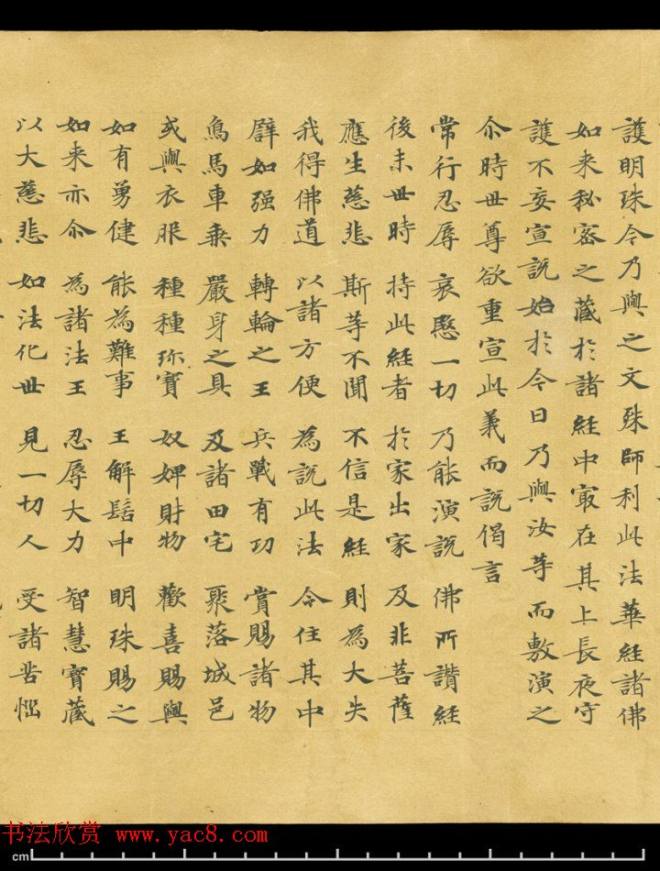 護明珠今乃與之文殊師利此法華經諸佛
如来秘密之藏於諸經中冣在其上長夜守
護不妄宣説始於今日乃與汝等而敷演之
尒時世尊欲重宣此義而説偈言
常行忍辱 哀愍一切 乃能演説 佛所讃經
後末世時 持此經者 於家出家 及非菩薩
應生慈悲 斯等不聞 不信是經 則為大失
我得佛道 以諸方便 為説此法 令住其中
譬如强力 轉輪之王 兵戰有功 賞賜諸物
鳥馬車乘 嚴身之具 及諸田宅 聚落城邑
或與衣服 種種珎寶 奴婢財物 歡喜賜與
如有勇健 能為難事 王解髻中 明珠賜之
如来亦尒 為諸法王 忍辱大力 智慧寶藏
以大慈悲 如法化世 見一切人 受諸苦惱
书法欣赏 www.yac8.com
cm